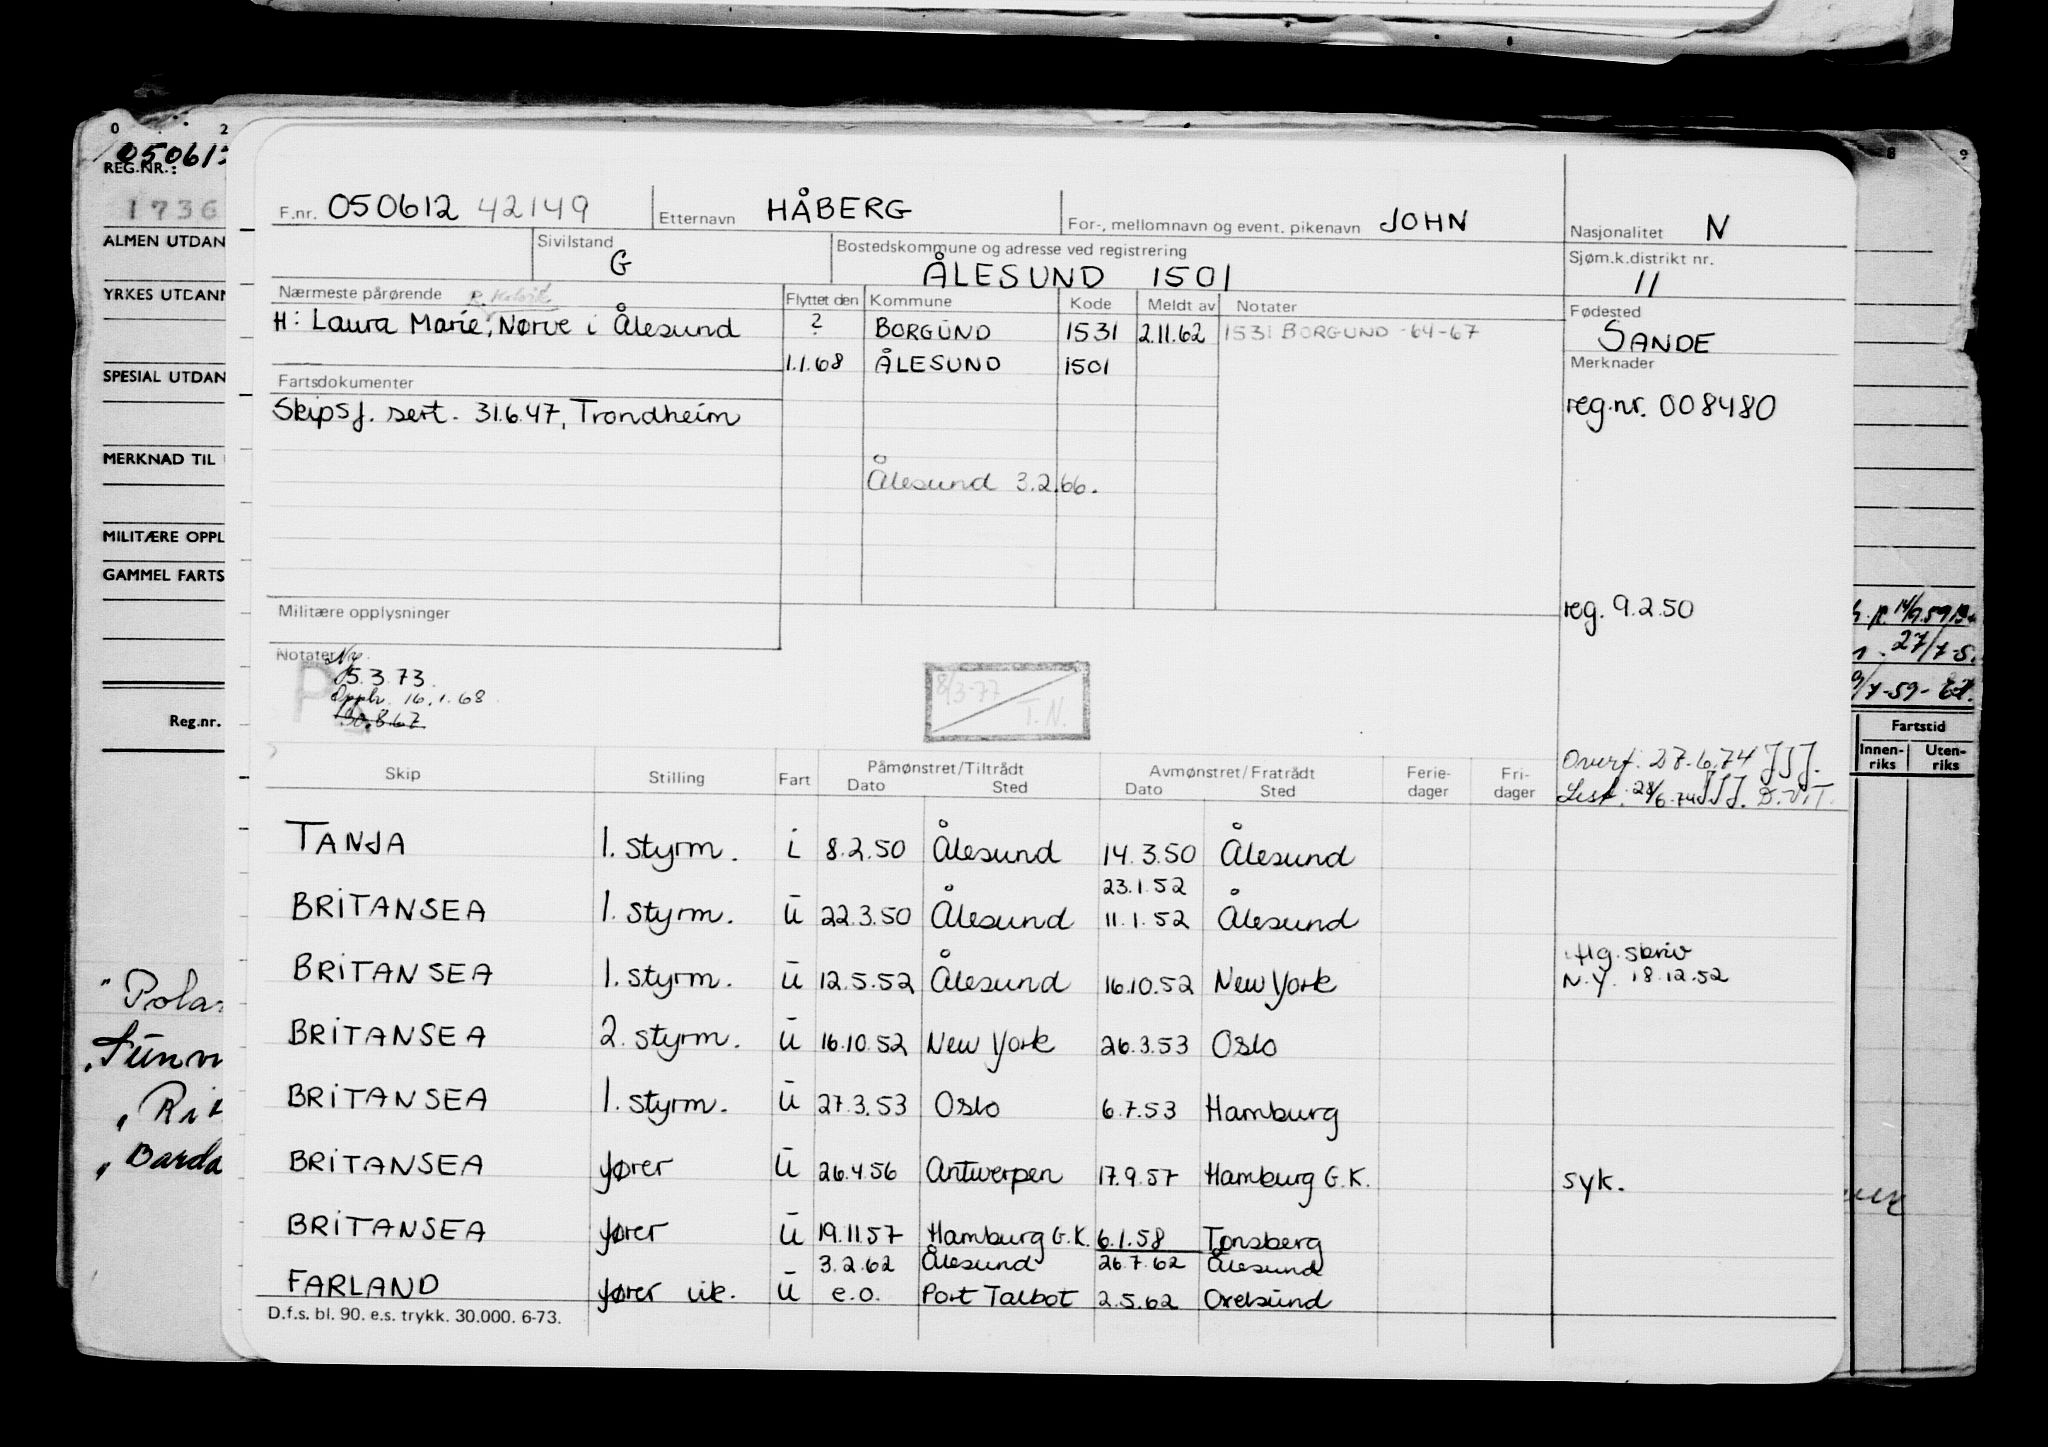 0 2 8 9
050613
REG.NR.:
1736
ALMEN UTDAN
YRKES UTDANN
SPESIAL UTDAN
MERKNAD TIL
MILITÆRE OPPL
GAMMEL FARTS
Reg.nr.
F.nr. 050612 42149 Etternavn HÅBERG For-, mellomnavn og event. pikenavn JOHN Nasjonalitet N
Sivilstand G Bostedskommune og adresse ved registrering ÅLESUND 1501 Sjøm.k.distrikt nr. 11
Nærmeste pårørende Flyttet den Kommune Kode Meldt av Notater Fødested SANDE
H: Laura Marie, Nørve i Ålesund ? BORGUND 1531 2.11.62 1531 BORGUND -64-67
1.1.68 ÅLESUND 1501 Merknader
Fartsdokumenter
Skipsf. sert. 31.6.47, Trondheim reg.nr. 008480
Ålesund 3.2.66.
Militære opplysninger reg. 9.2.50
Notater
Ny.
5.3.73.
Oppbr. 16.1.68
30.8.67
8/3-77
T.N.
Overf. 27.6.74 JSJ.
Skip Stilling Fart Påmønstret/Tiltrådt Dato Sted Avmønstret/Fratrådt Dato Sted Ferie-dager Fri-dager
28/6-74 JSJ. D.V.T.
TANJA 1. styrm. i 8.2.50 Ålesund 14.3.50 Ålesund
23.1.52
BRITANSEA 1. styrm. u 22.3.50 Ålesund 11.1.52 Ålesund
Hg. skriv
BRITANSEA 1. styrm. u 12.5.52 Ålesund 16.10.52 New York N.Y. 18.12.52
BRITANSEA 2. styrm. u 16.10.52 New York 26.3.53 Oslo
BRITANSEA 1. styrm. u 27.3.53 Oslo 6.7.53 Hamburg
BRITANSEA fører u 26.4.56 Antwerpen 17.9.57 Hamburg G.K. syk.
BRITANSEA fører u 19.11.57 Hamburg G.K. 6.1.58 Tønsberg
3.2.62 Ålesund 26.7.62 Ålesund
FARLAND fører vik. u e.o. Port Talbot 2.5.62 Oxelsund
D.f.s. bl. 90. e.s. trykk. 30.000. 6-73.
27/7-5
Fartstid
Innen-riks Uten-riks